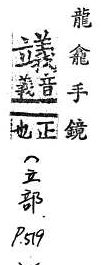 龍龕手鏡
䇶音義正也
(立部.
P.519